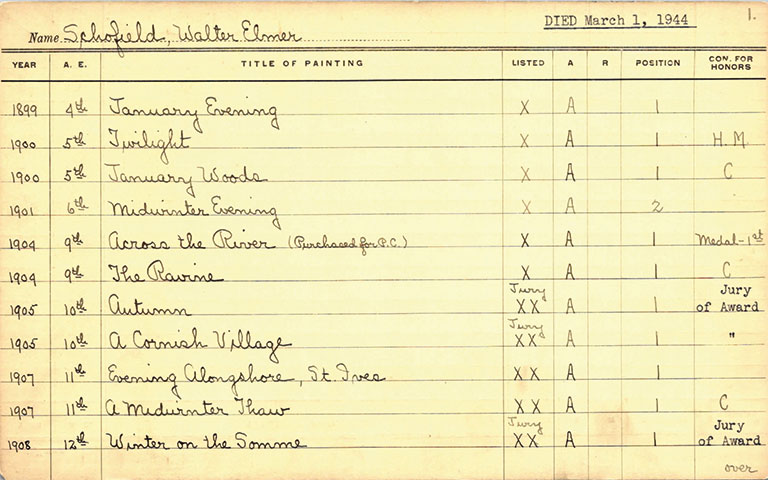 DIED March 1, 1944 1.
Name Schofield, Walter Elmer
YEAR A. E. TITLE OF PAINTING LISTED A R POSITION CON. FOR HONORS
1899 4th January Evening X A 1
1900 5th Twilight X A 1 H.M
1900 5th January Woods X A 1 C
1901 6th Midwinter Evening X A 2
1904 9th Across the River (Purchased for P.C.) X A 1 Medal-1st
1904 9th The Ravine X A 1 C
1905 10th Autumn Jury XX A 1 Jury of Award
1905 10th A Cornish Village Jury XX A 1 "
1907 11th Evening Alongshore, St. Ives XX A 1
1907 11th A Midwinter Thaw XX A 1 C
1908 12th Winter on the Somme Jury XX A 1 Jury of Award
over